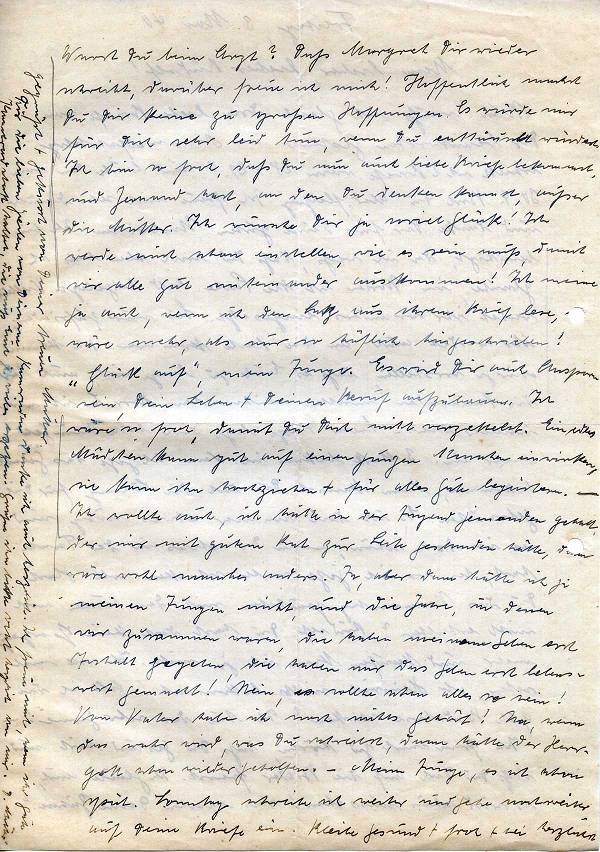 Warst Du beim Arzt? Daß Margret Dir wieder
schreibt, darüber freue ich mich! Hoffentlich machst
Du Dir keine zu großen Hoffnungen. Es würde mir
für Dich sehr leid tun, wenn Du enttäuscht würdest.
Ich bin so froh, daß Du nun auch liebe Briefe bekommst,
und Jemand hast, an den Du denken kannst, außer
die Mutter. Ich wünsche Dir ja soviel Glück! Ich
werde mich schon einstellen, wie es sein muß, damit
wir alle gut miteinander auskommen! Ich meine
ja auch, wenn ich den Satz aus ihrem Brief lese,
wäre mehr, als nur so höflich hingeschrieben!
"Glück auf", mein Junge. Es wird Dir auch Ansporn
sein, Dein Leben + Deinen Beruf aufzubauen. Ich
wäre so froh, damit Du Dich nicht verzettelst. Ein edles
Mädchen kann gut auf einen jungen Menschen einwirken,
sie kann ihn hochziehen + für alles Gute begeistern. —
Ich wollte auch, ich hätte in der Jugend jemanden gehabt,
der mir mit gutem Rat zur Seite gestanden hätte, dann
wäre wohl manches anders. Ja, aber dann hätte ich ja
meinen Jungen nicht, und die Jahre, in denen
wir zusammen waren, die haben meinem Leben erst
Gestalt gegeben, die haben mir das Leben erst lebens-
wert gemacht! Nein, es sollte schon alles so sein!
Von Vater habe ich noch nichts gehört! Na, wenn
das wahr wird, was Du schreibst, dann hätte der Herr-
gott schon wieder geholfen. — Mein Junge, es ist schon
spät. Sonntag schreibe ich weiter und gehe noch weiter
auf Deine Briefe ein. Bleibe gesund + froh + sei herzlichst
gegrüßt + geküsst von Deiner treuen Mutter.
Für die lieben Zeilen von Deinem Kameraden danke ich auch herzlich. Ich freue mich, wenn ihr gute
Kameradschaft